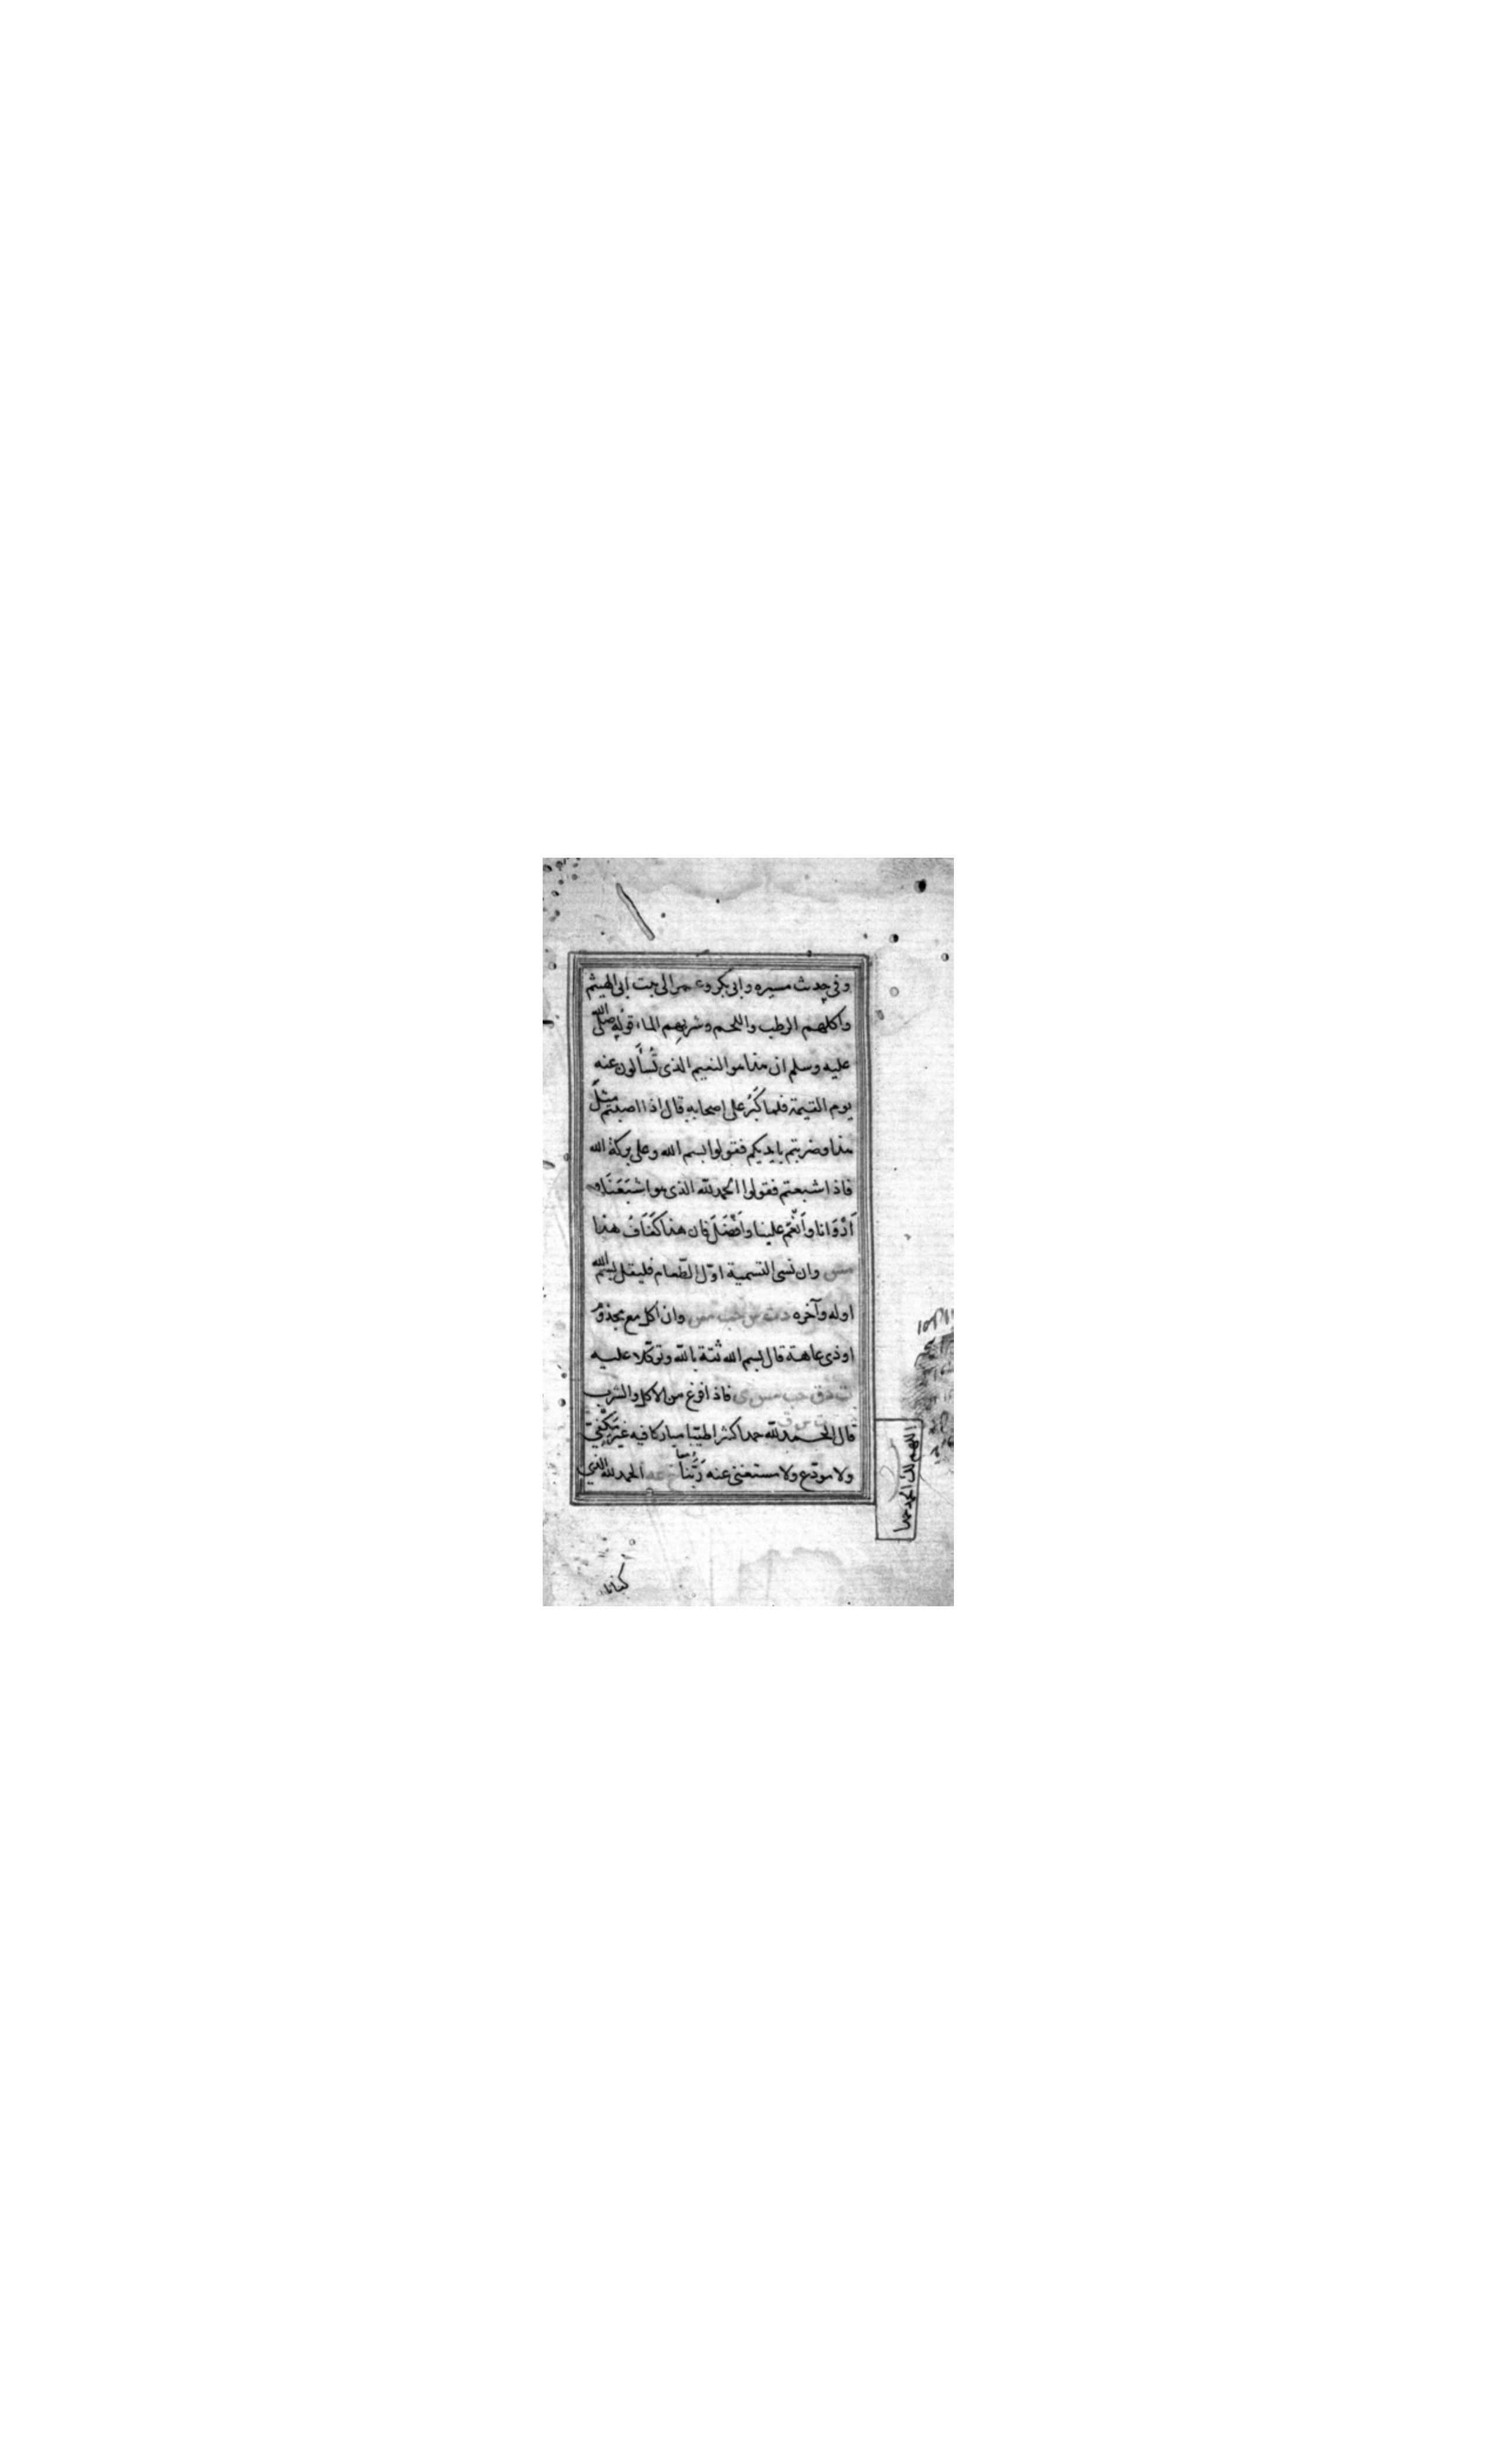 وفى حديث مسيره وابى بكر وعمر الى بيت ابى الهيثم
واكلهم الرطب واللحم وشربهم الماء قوله صلى الله
عليه وسلم ان هذا هو النعيم الذى تُسألون عنه
يوم القيمة فلما كَبُرَ على اصحابه قال اذا اصبتم مثل
هذا وضربتم بايديكم فقولوا بسم الله وعلى بركة الله
فاذا شبعتم فقولوا الحمد لله الذى هو اشبَعَنَا و
اَرْوَانا واَنْعَمَ علينا واَفْضَلَ فان هذا كَفَافُ هذا
مس وان نسى التسمية اوّل الطّعام فليقل بسم الله
اوله وآخره د ت س حب مس وان اكل مع مجذومٍ
اوذى عاهة قال بسم الله ثقة بالله وتوكّلا عليه
ت د ق حب مس ى فاذا فرغ من الاكل والشرب
قال الحمد لله حمدا كثيرا طيّبا مباركا فيه غيرَ مَكْفِيّ
ولا مودّع ولا مستغنى عنه رَبَّنا خ عه الحمد لله الذي
اللهم لك الحمد حمدا
كفانا